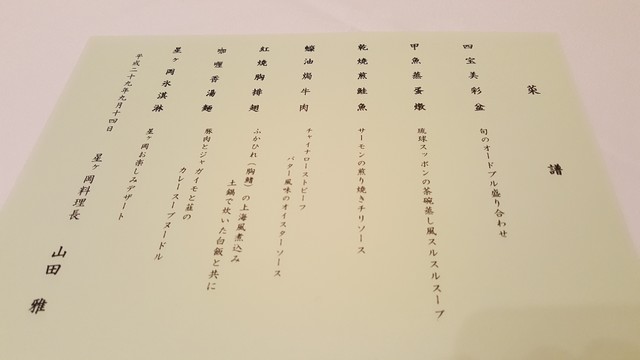 菜譜
四宝美彩盆
旬のオードブル盛り合わせ
甲魚蒸蛋燉
琉球スッポンの茶碗蒸し風スルスルスープ
乾焼煎鮭魚
サーモンの煎り焼きチリソース
蠔油焗牛肉
チャイナローストビーフ
バター風味のオイスターソース
紅焼胸排翅
ふかひれ（胸鰭）の上海風煮込み
土鍋で炊いた白飯と共に
咖喱香湯麺
豚肉とジャガイモと茸の
カレースープヌードル
星ヶ岡氷淇淋
星ヶ岡お楽しみデザート
平成二十九年九月十四日
星ヶ岡料理長
山田 雅